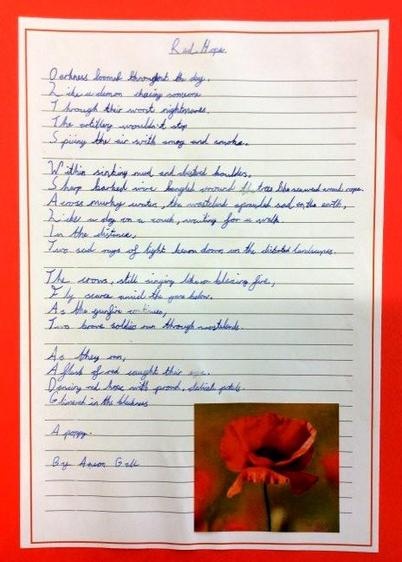 Red Hope
Darkness loomed throughout the day.
Like a demon chasing someone
Through their worst nightmares.
The artillery wouldn't stop
Spiking the air with smog and smoke.
Within sinking mud and dusted boulders,
Sharp barbed wire tangled around the trees like seaweed round rope.
Across murky water, the wasteland sprawled sad on the earth,
Like a dog on a couch, waiting for a walk.
In the distance,
Two red rays of light beam down on the distorted landscapes.
The crows, still singing like a blazing fire,
Fly scarce amid the gore below.
As the gunfire continues,
Two brave soldiers run through wastelands.
As they ran,
A flash of red caught their eye.
Dancing red hope with proud, delicate petals.
Glimmered in the bleakness
A poppy.
By Anson